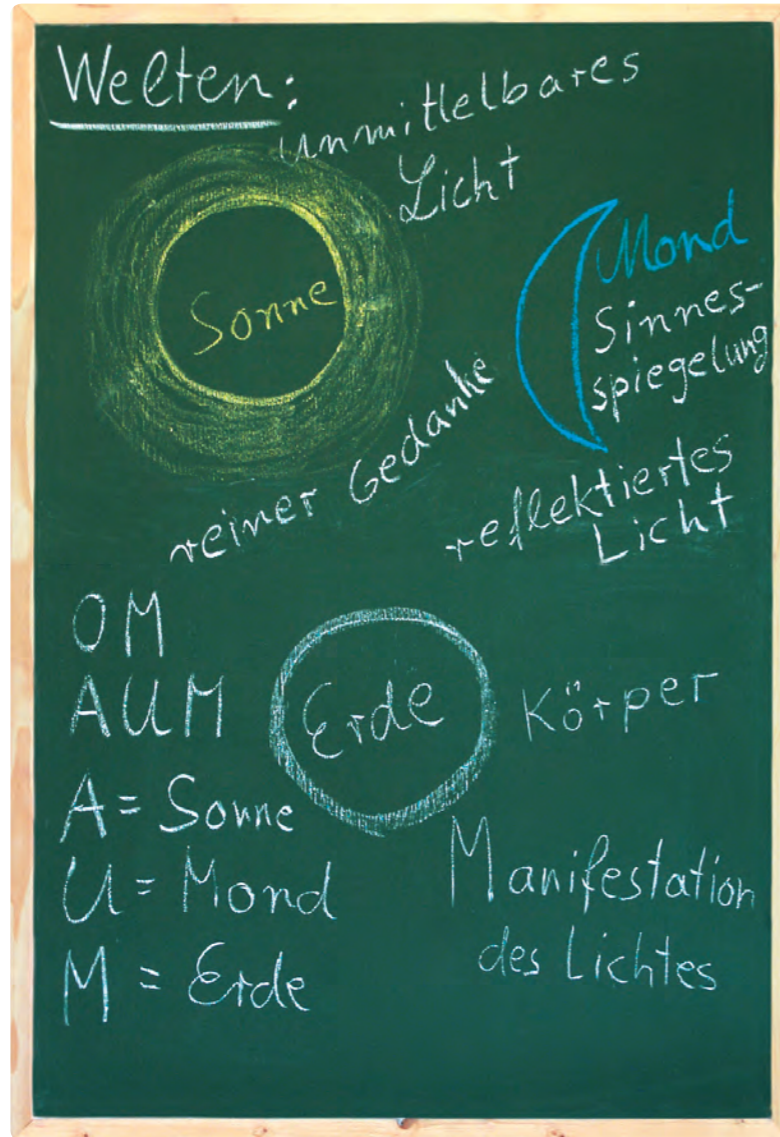 Welten:
unmittelbares
Licht
Sonne
reiner Gedanke
Mond
Sinnes-
spiegelung
reflektiertes
Licht
OM
AUM
A = Sonne
U = Mond
M = Erde
Erde
Körper
Manifestation
des Lichtes